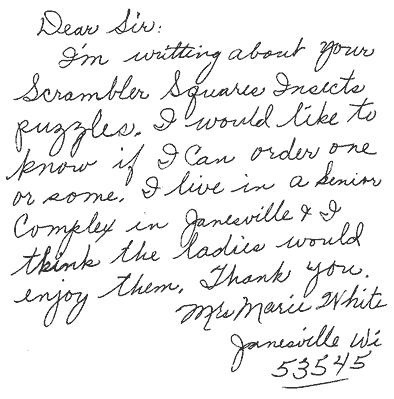 Dear Sir:
I'm writting about your
Scrambler Squares Insects
puzzles. I would like to
know if I Can order one
or some. I live in a Senior
Complex in Janesville & I
think the ladies would
enjoy them. Thank you.
Mrs Marie White
Janesville Wi
53545